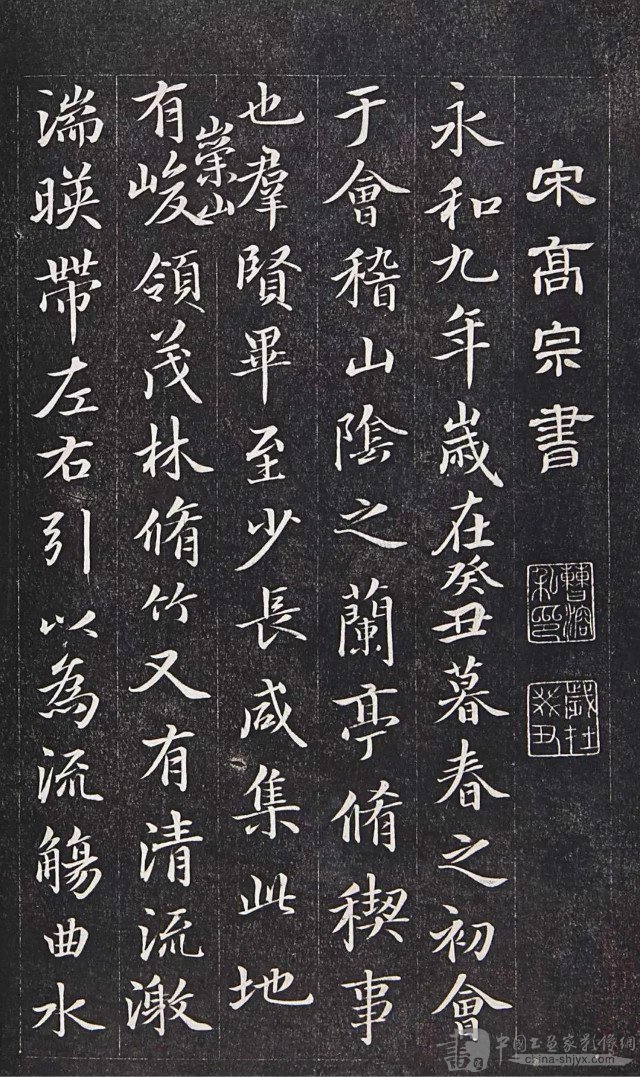 宋髙宗書
曹溶私印
永和九年歲在癸丑暮春之初會
于會稽山陰之蘭亭脩稧事
也羣賢畢至少長咸集此地
有崇山峻領茂林脩竹又有清流激
湍暎帶左右引以為流觴曲水
書
中國书画家影像網
china-shjyx.com